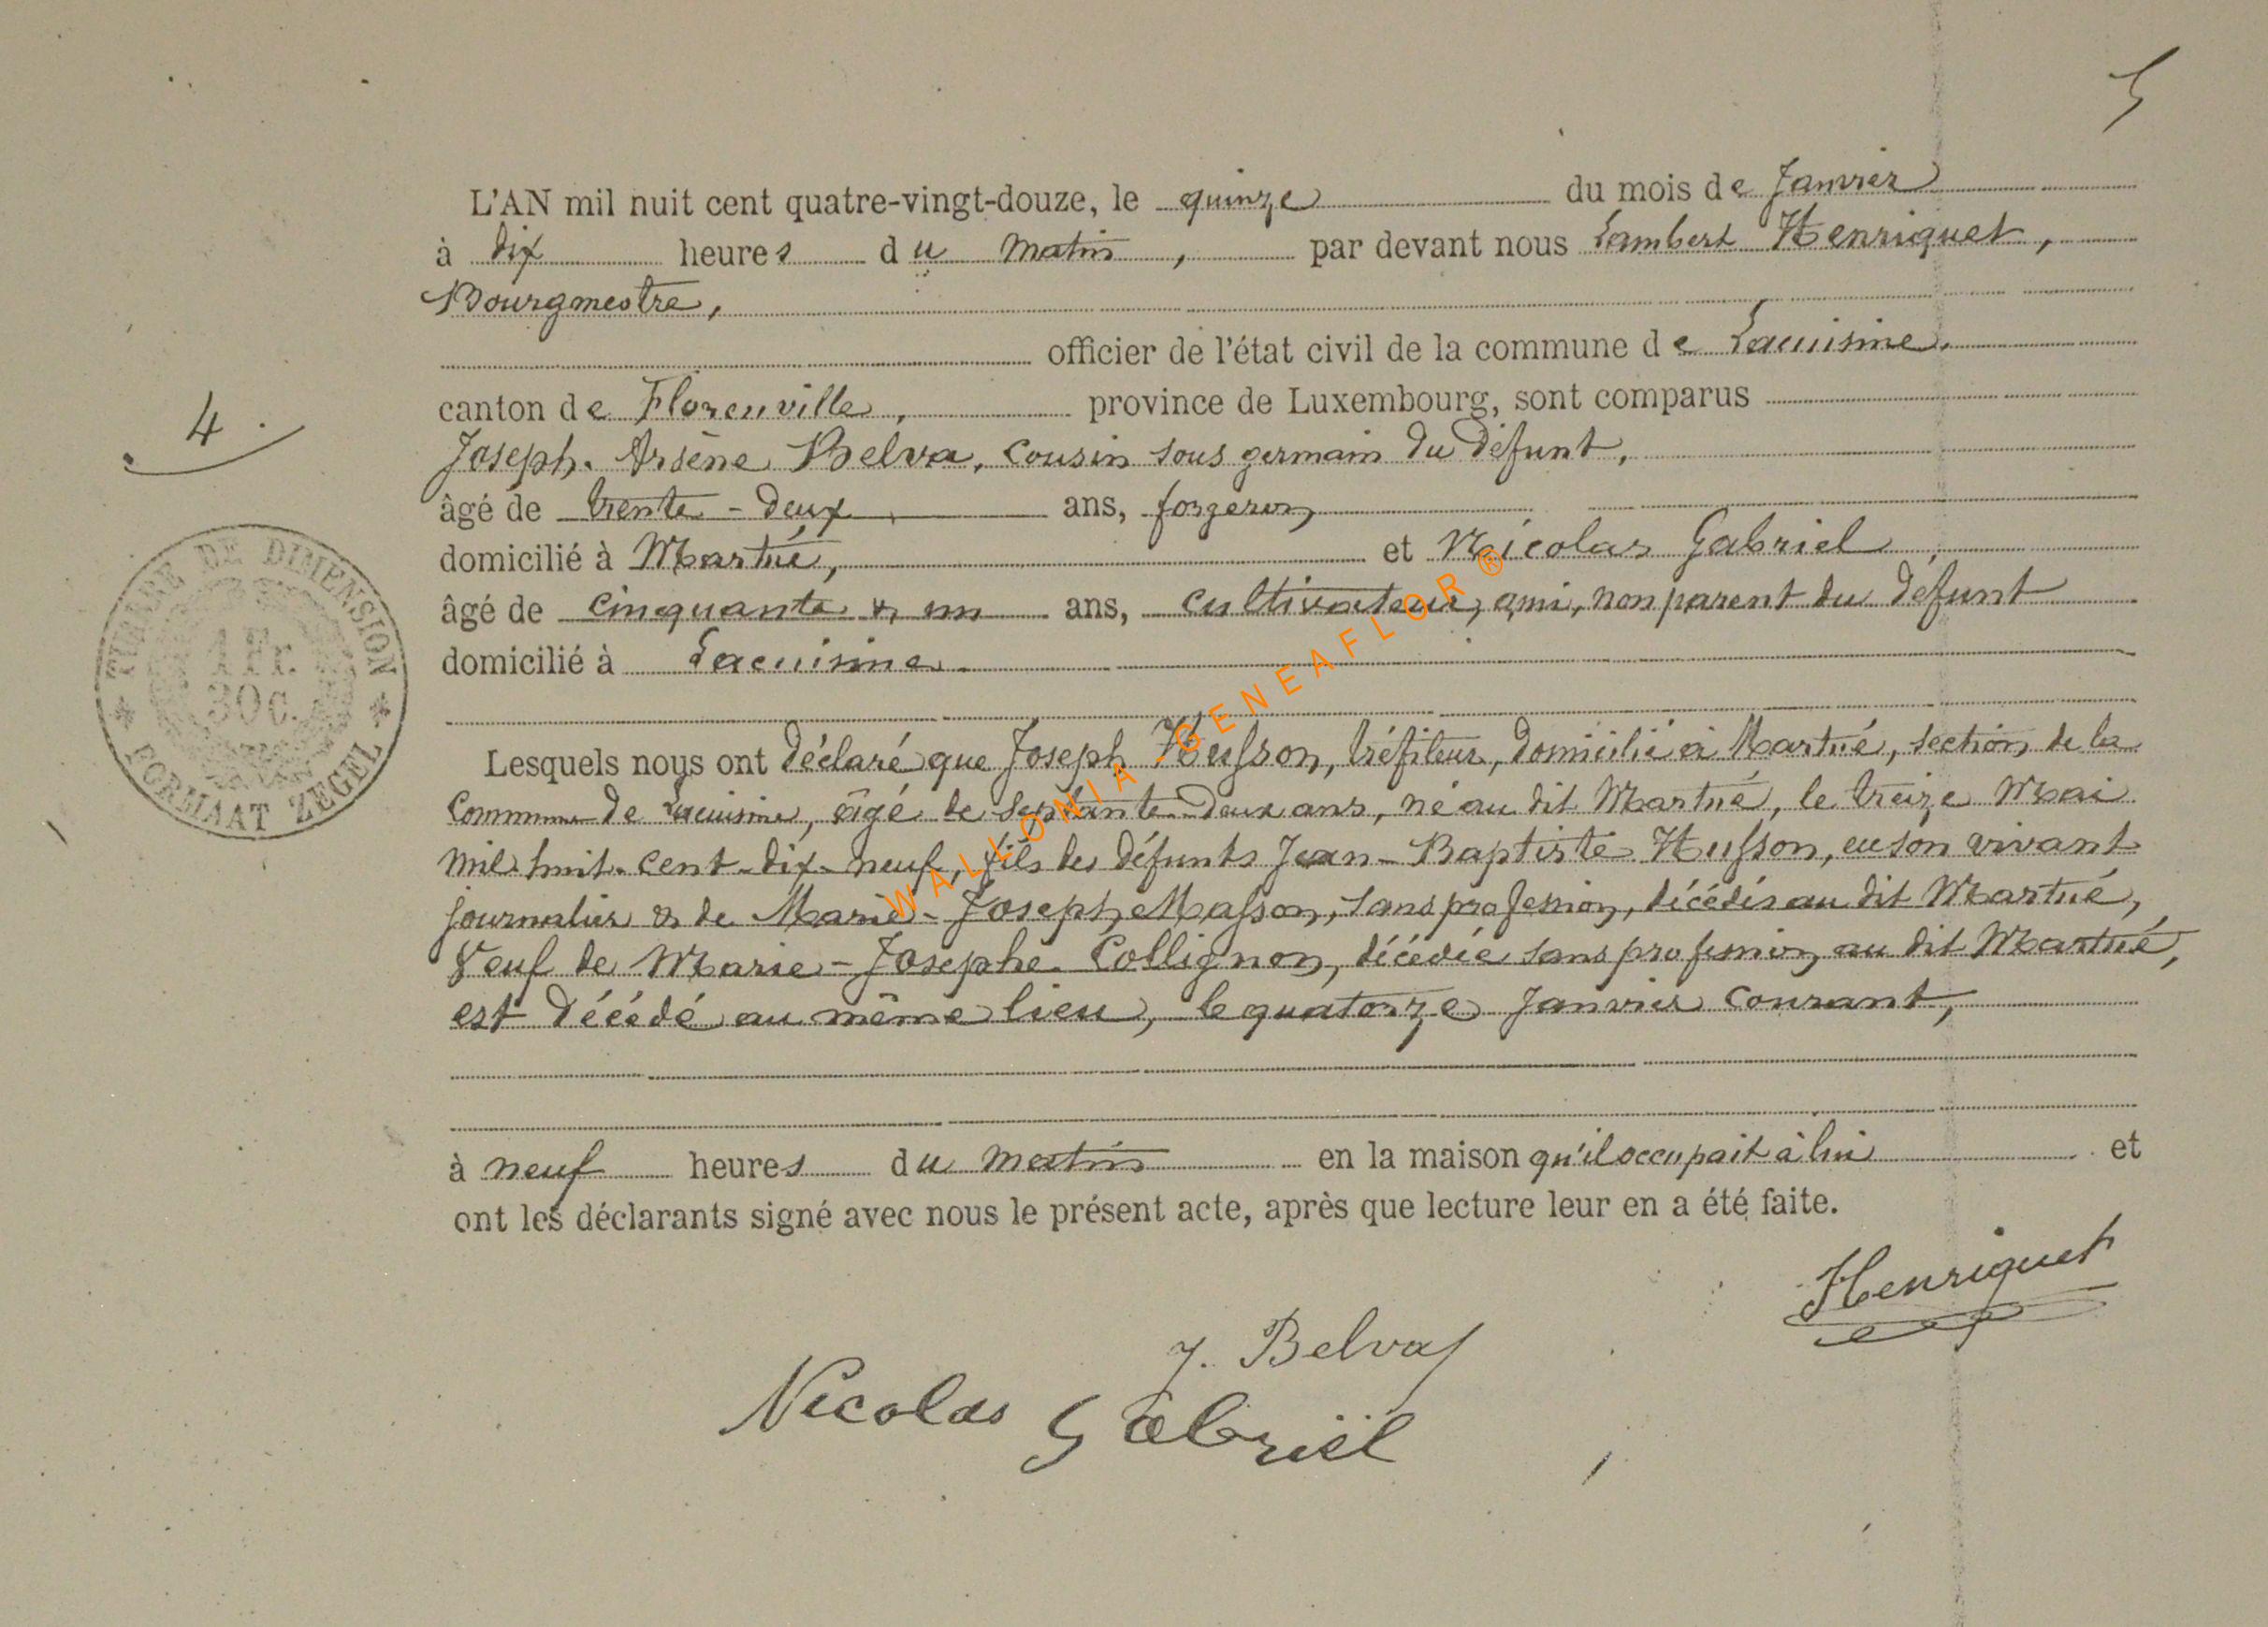 5
L'AN mil huit cent quatre-vingt-douze, le quinze du mois de Janvier
à dix heures du matin, par devant nous Lambert Henriquet,
Bourgmestre,
officier de l'état civil de la commune de Lacuisine,
canton de Florenville, province de Luxembourg, sont comparus
4.
Joseph-Arsène Belva, cousin sous germain du défunt,
âgé de trente-deux ans, forgeron,
domicilié à Martué, et Nicolas Gabriel,
âgé de cinquante & un ans, cultivateur, ami, non parent du défunt
domicilié à Lacuisine.
TIMBRE DE DIMENSION
1 Fr.
30 c.
FORMAAT ZEGEL
Lesquels nous ont déclaré que Joseph Husson, tréfileur, domicilié à Martué, section de la
Commune de Lacuisine, âgé de septante-deux ans, né au dit Martué, le treize Mai
mil huit-cent-dix-neuf, fils des défunts Jean-Baptiste Husson, en son vivant
journalier & de Marie-Josephe Masson, sans profession, décédés au dit Martué,
Veuf de Marie-Josephe Collignon, décédée sans profession au dit Martué,
est décédé au même lieu, le quatorze Janvier courant,
à neuf heures du matin en la maison qu'il occupait à lui et
ont les déclarants signé avec nous le présent acte, après que lecture leur en a été faite.
Henriquet
J. Belva
Nicolas Gabriel
WALLONIA GENEAFLOR ®